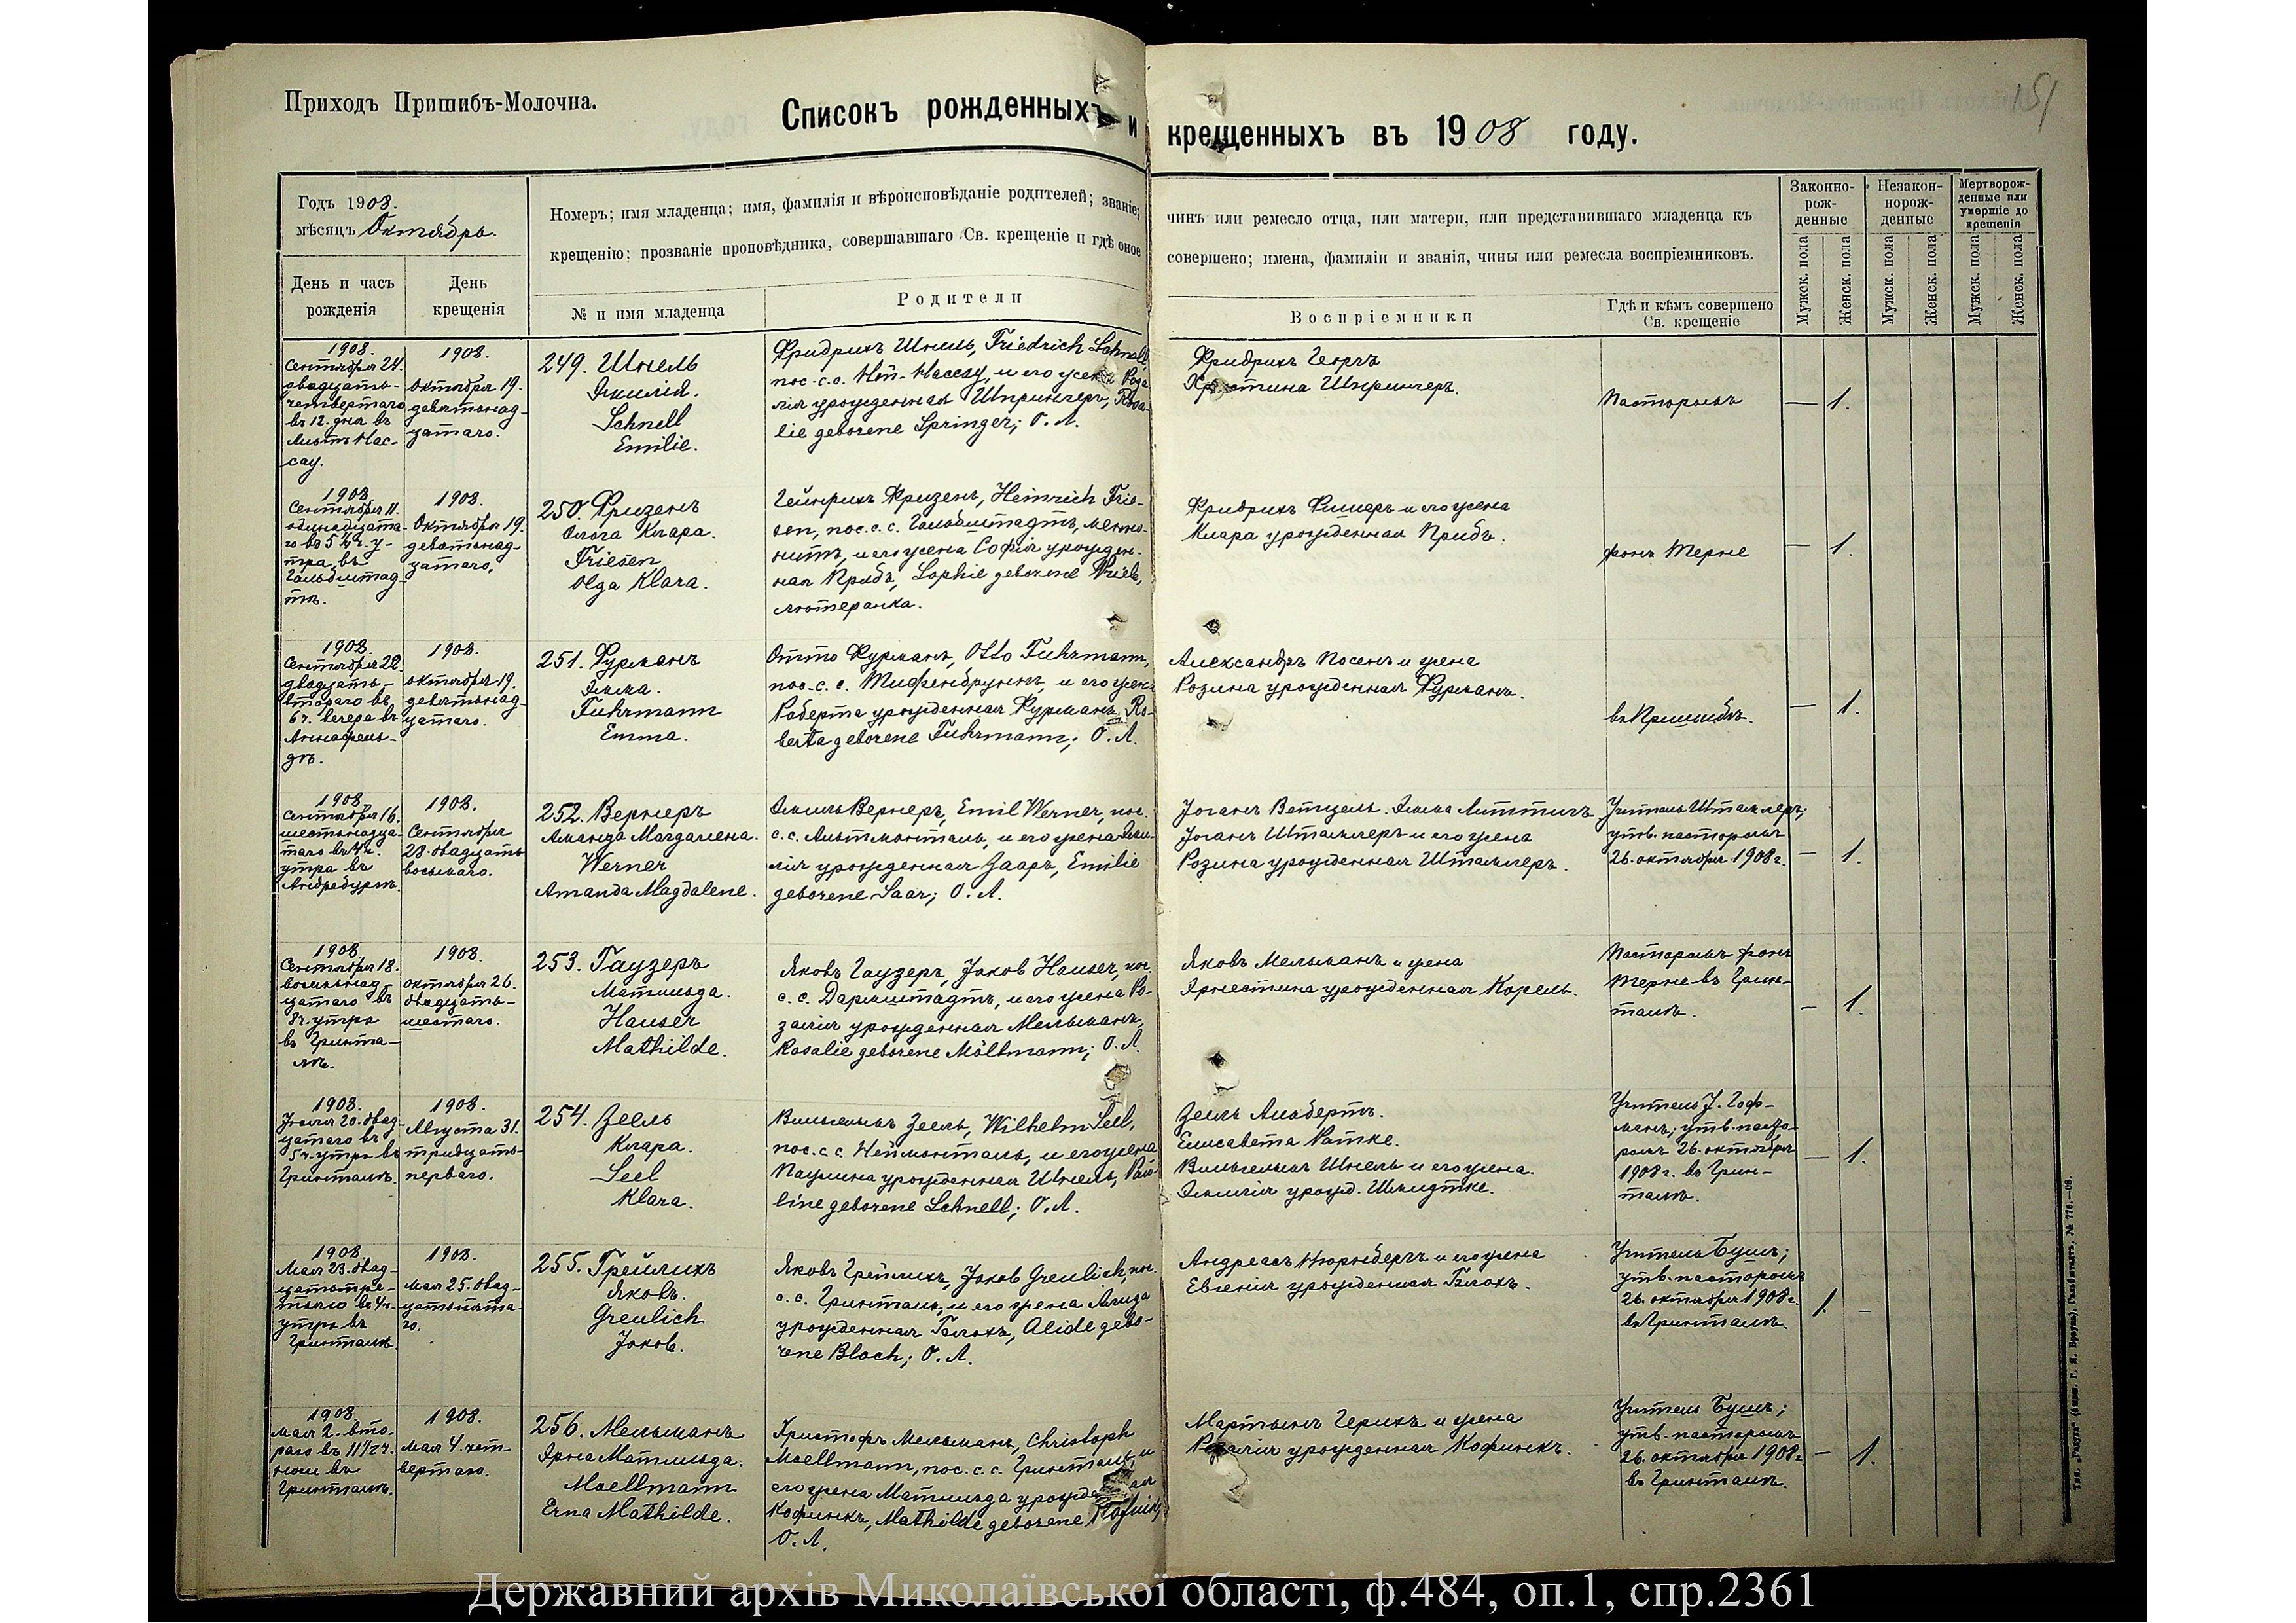 Приходъ Пришибъ-Молочна.
Списокъ рожденныхъ и крещенныхъ въ 1908 году.
151
Годъ 1908.
мѣсяцъ Октябрь.
День и часъ рожденія
День крещенія
Номеръ; имя младенца; имя, фамилія и вѣроисповѣданіе родителей; званіе;
крещенію; прозваніе проповѣдника, совершавшаго Св. крещеніе и гдѣ оное
№ и имя младенца
Родители
чинъ или ремесло отца, или матери, или представившаго младенца къ
совершено; имена, фамиліи и званія, чины или ремесла воспріемниковъ.
Воспріемники
Гдѣ и кѣмъ совершено
Св. крещеніе
Законно-
рож-
денные
Незакон-
норож-
денные
Мертворож-
денные или
умершіе до
крещенія
Мужск. пола
Женск. пола
Мужск. пола
Женск. пола
Мужск. пола
Женск. пола
1908.
Сентября 24.
двадцать-
четвертаго
въ 12. дня въ
Альтъ Нас-
сау.
1908.
Октября 19.
девятнад-
цатаго.
249. Шнель
Эмилія.
Schnell
Emilie.
Фридрихъ Шнель, Friedrich Schnell,
пос. с. с. Ней-Нассау, и его жена Роза-
лія урожденная Шпрингеръ, Rosa-
lie geborene Springer; О. Л.
Фридрихъ Георгъ
Христина Шпрингеръ.
Пасторомъ
— 1.
1908.
Сентября 11.
одинадцата-
го въ 5 ½ ч. у-
тра, въ
Гальбштад-
тѣ.
1908.
Октября 19.
девятнад-
цатаго.
250. Фризенъ
Ольга Клара.
Friesen
Olga Klara.
Гейнрихъ Фризенъ, Heinrich Frie-
sen, пос. с. с. Гальбштадтъ, менно-
нитъ, и его жена Софія урожден-
ная Прибъ, Sophie geborene Prieb,
лютеранка.
Фридрихъ Фишеръ и его жена
Клара урожденная Прибъ.
фонъ Терне
— 1.
1908.
Сентября 22.
двадцать-
втораго въ
6 ч. вечера въ
Аннафель-
дѣ.
1908.
Октября 19.
девятнад-
цатаго.
251. Фурманъ
Эмма.
Fuhrmann
Emma.
Отто Фурманъ, Otto Fuhrmann,
пос. с. с. Тифенбруннъ, и его жена
Роберта урожденная Фурманъ, Ro-
berta geborene Fuhrmann; О. Л.
Александръ Посенъ и жена
Розина урожденная Фурманъ.
въ Пришибѣ.
— 1.
1908.
Сентября 16.
шестнадца-
таго въ 4 ч.
утра въ
Андребургѣ.
1908.
Сентября
28. двадцать
восьмаго.
252. Вернеръ
Аманда Магдалена.
Werner
Amanda Magdalene.
Эмиль Вернеръ, Emil Werner, пос.
с. с. Альтмонталь, и его жена Эми-
лія урожденная Зааръ, Emilie
geborene Saar; О. Л.
Іоганъ Ветцель. Эмма Литтихъ
Іоганъ Штамлеръ и его жена
Розина урожденная Штамлеръ.
Учитель Штамлеръ;
утв. пасторомъ
26. октября 1908 г.
— 1.
1908.
Сентября 18.
восьмнад-
цатаго въ
8 ч. утра
въ Грюнта-
лѣ.
1908.
октября 26.
двадцать-
шестаго.
253. Гаузеръ
Матильда.
Hauser
Mathilde.
Яковъ Гаузеръ, Jakob Hauser, пос.
с. с. Дармштадтъ, и его жена Ро-
залія урожденная Мельманъ,
Rosalie geborene Möllmann; О. Л.
Яковъ Мельманъ и жена
Эрнестина урожденная Корель.
Пасторомъ фонъ
Терне въ Грюн-
талѣ.
— 1.
1908.
Іюля 20. двад-
цатаго въ
5 ч. утра въ
Грюнталѣ.
1908.
Августа 31.
тридцать-
перваго.
254. Зеель
Клара.
Seel
Klara.
Вильгельмъ Зеель, Wilhelm Seel,
пос. с. с. Нейменталь, и его жена
Паулина урожденная Шнель, Pau-
line geborene Schnell; О. Л.
Зеель Альбертъ.
Елисавета Ратке.
Вильгельмъ Шнель и его жена.
Эмилія урожд. Шмидтке.
Учитель J. Гоф-
манъ; утв. пасто-
ромъ 26. октября
1908 г. въ Грюн-
талѣ.
— 1.
1908.
Мая 23. двад-
цатьтре-
тьяго въ 4 ч.
утра въ
Грюнталѣ.
1908.
Мая 25. двад-
цатьпята-
го.
255. Грейлихъ
Яковъ.
Greulich
Jakob.
Яковъ Грейлихъ, Jakob Greulich, пос.
с. с. Грюнталь, и его жена Алида
урожденная Блохъ, Alide gebo-
rene Bloch; О. Л.
Андреасъ Нюрнбергъ и его жена
Евгенія урожденная Блохъ.
Учитель Бушъ;
утв. пасторомъ
26. октября 1908 г.
въ Грюнталѣ.
1. –
1908.
Мая 2. вто-
раго въ 11 1/2 ч.
ночи въ
Грюнталѣ.
1908.
Мая 4. чет-
вертаго.
256. Мельманъ
Эрна Матильда.
Moellmann
Erna Mathilde.
Христофъ Мельманъ, Christoph
Moellmann, пос. с. с. Грюнталь, и
его жена Матильда урожденная
Кофинкъ, Mathilde geborene Kofink;
О. Л.
Мартынъ Герихъ и жена
Розалія урожденная Кофинкъ.
Учитель Бушъ;
утв. пасторомъ
26. октября 1908 г.
въ Грюнталѣ.
— 1.
Тип. „Радуга“ (бывш. Г. Я. Брауна), Гальбштадтъ. № 776.—08.
Державний архів Миколаївської області, ф.484, оп.1, спр.2361